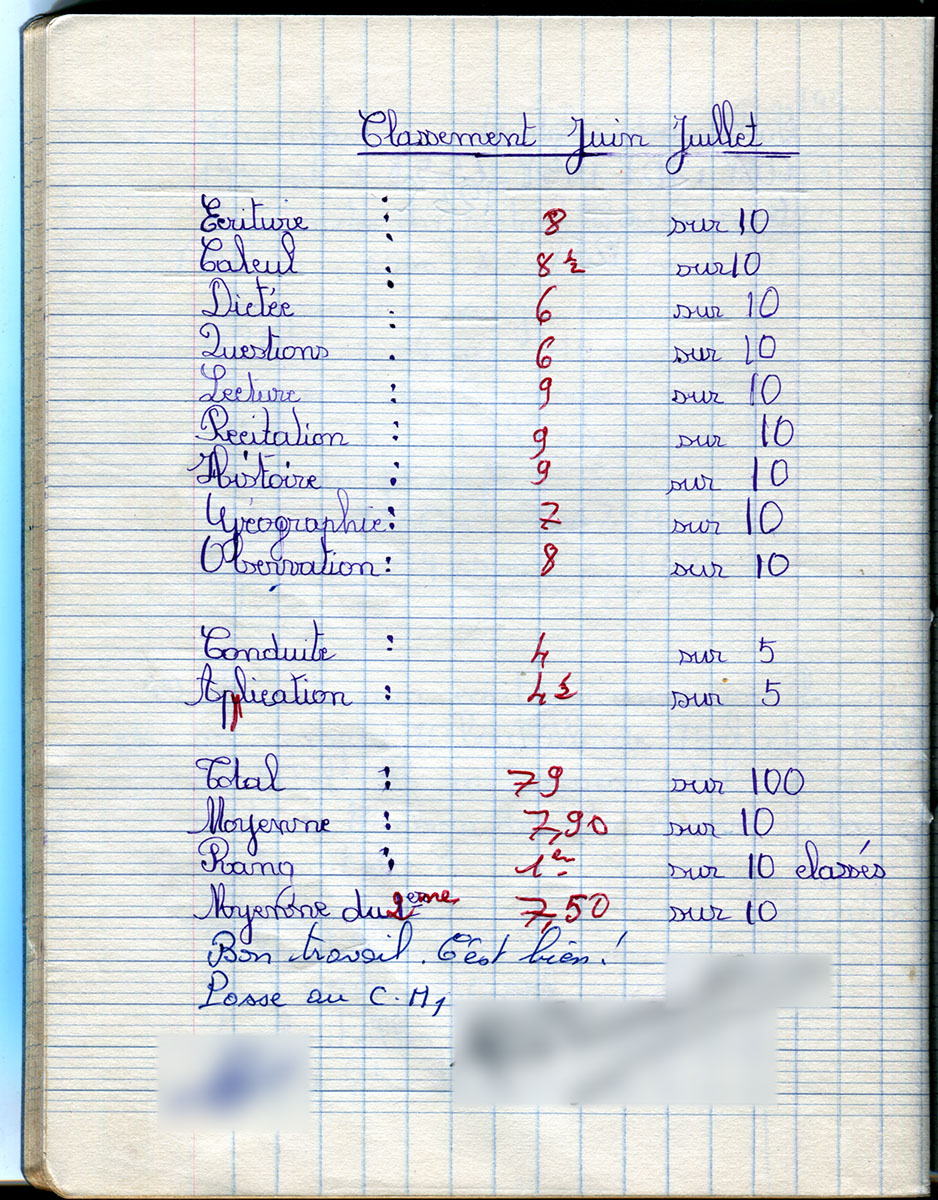 Classement Juin Juillet
Ecriture : 8 sur 10
Calcul : 8 ½ sur 10
Dictée : 6 sur 10
Questions : 6 sur 10
Lecture : 9 sur 10
Récitation : 9 sur 10
Histoire : 9 sur 10
Géographie : 7 sur 10
Observation : 8 sur 10
Conduite : 4 sur 5
Application : 4 ½ sur 5
Total : 79 sur 100
Moyenne : 7,90 sur 10
Rang : 1er sur 10 classés
Moyenne du 2eme 7,50 sur 10
Bon travail. C'est bien !
Passe au C.M1